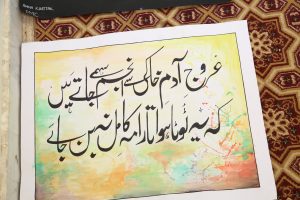 عروجِ آدمِ خاکی سے انجم سہمے جاتے ہیں
کہ یہ ٹوٹا ہوا تارا مہ کامل نہ بن جائے